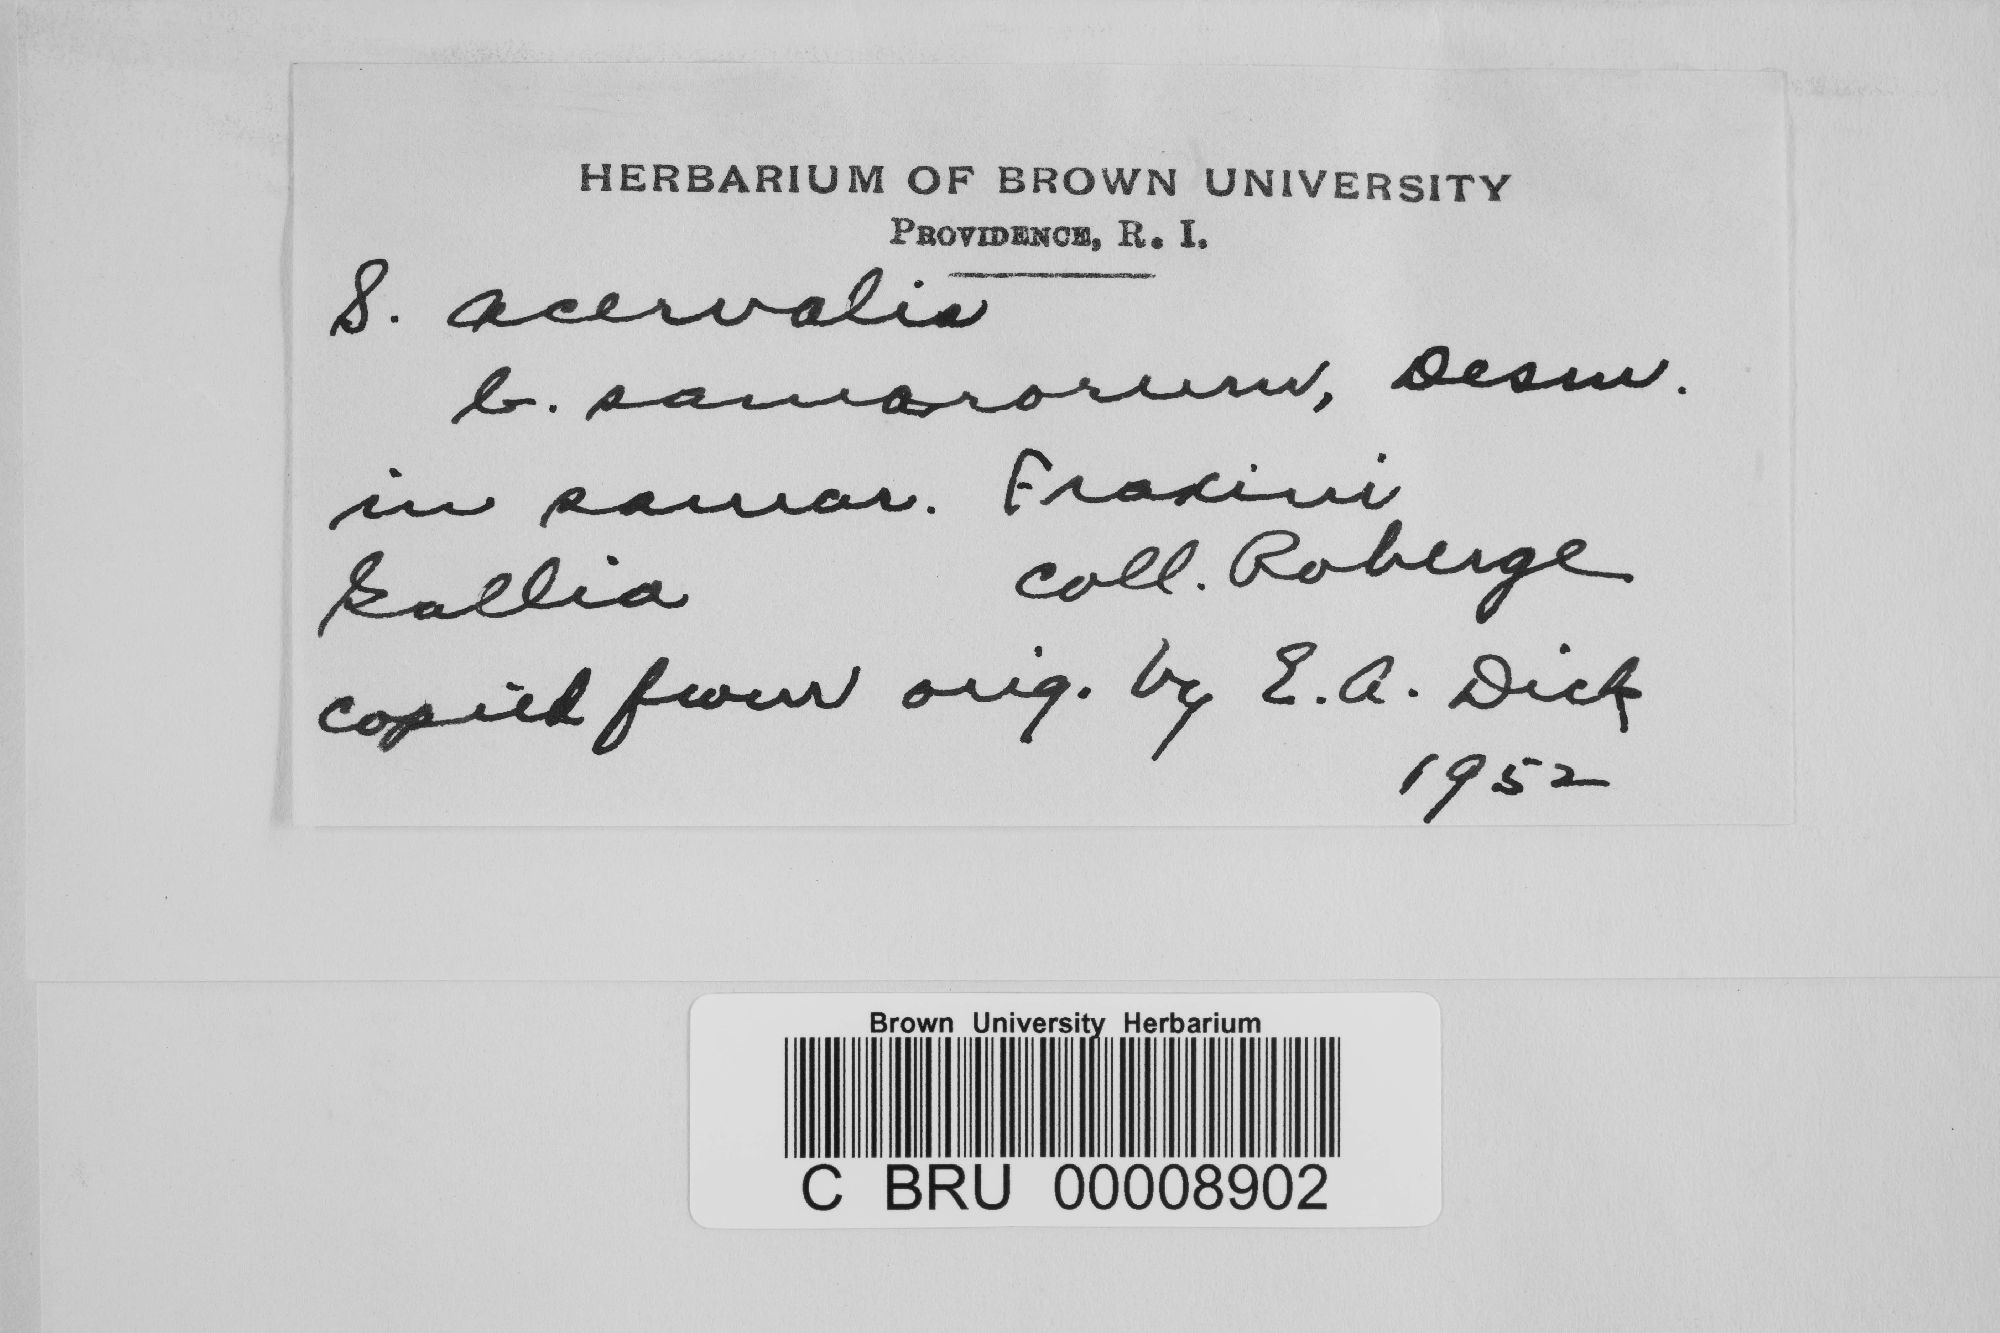 HERBARIUM OF BROWN UNIVERSITY
PROVIDENCE, R. I.
S. acervalis
b. samarorum, Desm.
in samar. Fraxini
Gallia coll. Roberge
copied from orig. by E. A. Dick
1952
Brown University Herbarium
C BRU 00008902